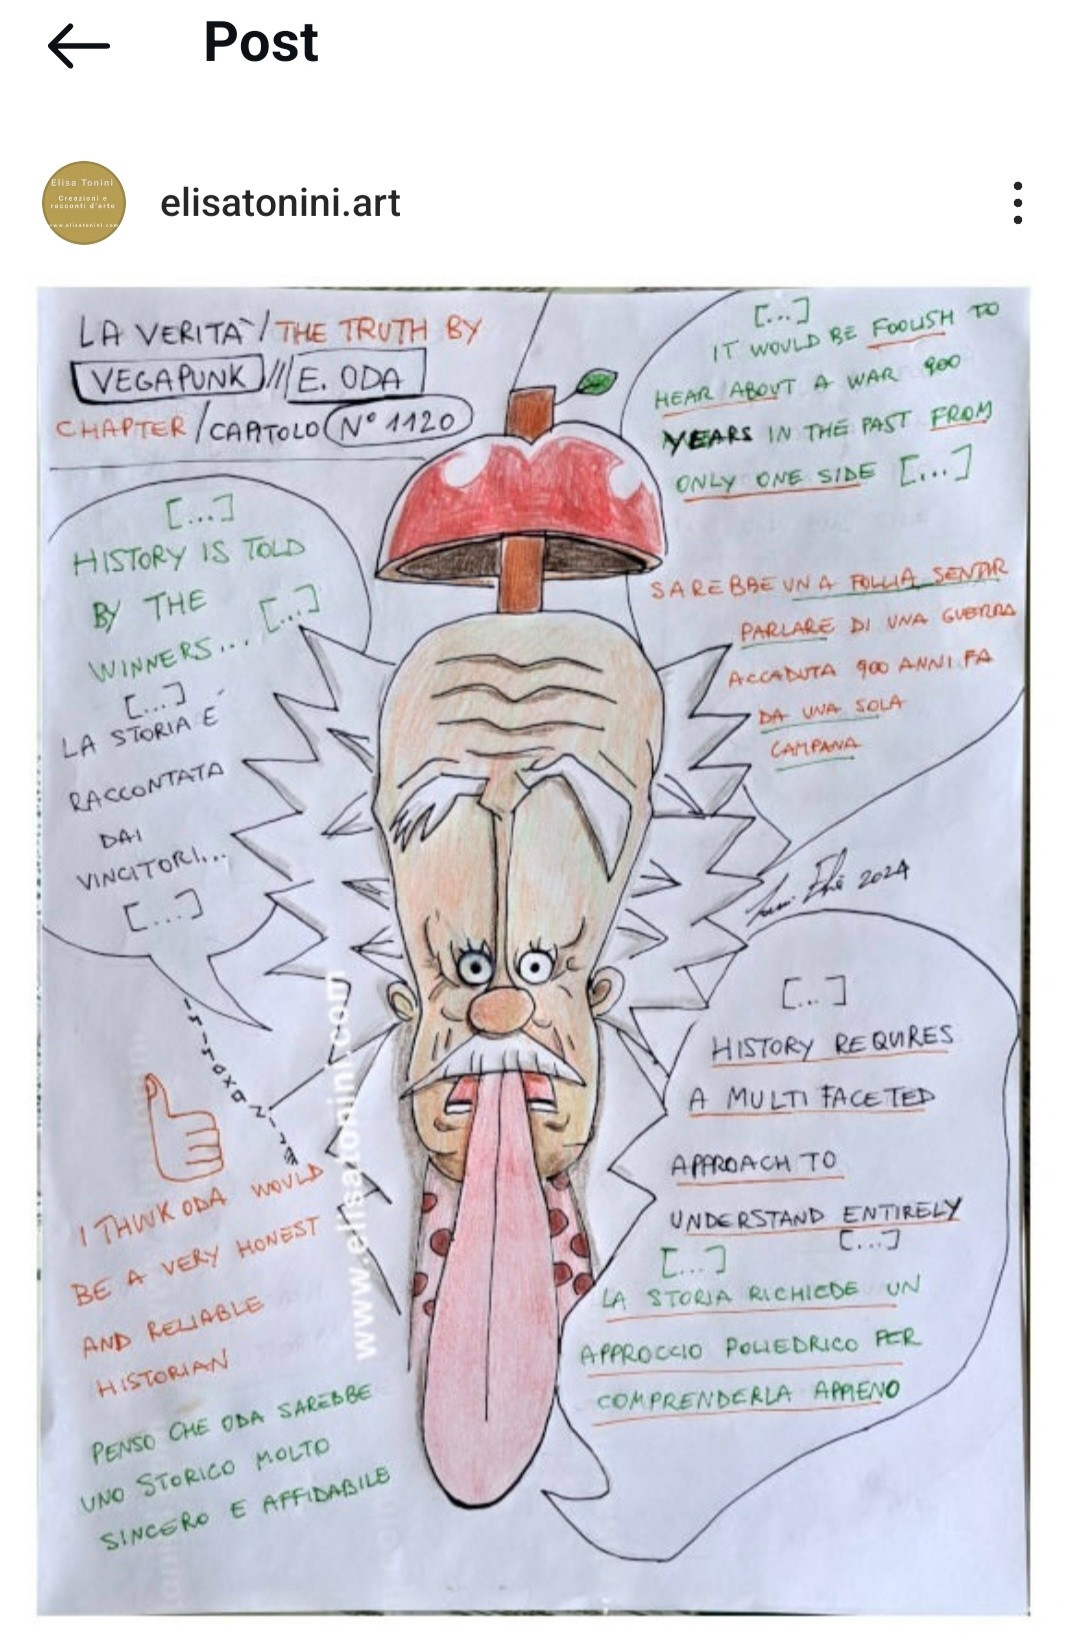 Post
Elisa Tonini
Creazioni e
racconti d'arte
www.elisatonini.com
elisatonini.art
LA VERITA`/THE TRUTH BY
VEGAPUNK///E. ODA
CHAPTER/CAPITOLO N° 1120
[...]
HISTORY IS TOLD
BY THE
WINNERS... [...]
[...]
LA STORIA É
RACCONTATA
DAI
VINCITORI...
[...]
[...]
IT WOULD BE FOOLISH TO
HEAR ABOUT A WAR 900
YEARS IN THE PAST FROM
ONLY ONE SIDE [...]
SAREBBE UNA FOLLIA SENTIR
PARLARE DI UNA GUERRA
ACCADUTA 900 ANNI FA
DA UNA SOLA
CAMPANA
2024
[...]
HISTORY REQUIRES
A MULTI FACETED
APPROACH TO
UNDERSTAND ENTIRELY
[...]
[...]
LA STORIA RICHIEDE UN
APPROCCIO POLIEDRICO PER
COMPRENDERLA APPIENO
I THINK ODA WOULD
BE A VERY HONEST
AND RELIABLE
HISTORIAN
PENSO CHE ODA SAREBBE
UNO STORICO MOLTO
SINCERO E AFFIDABILE
www.elisatonini.com